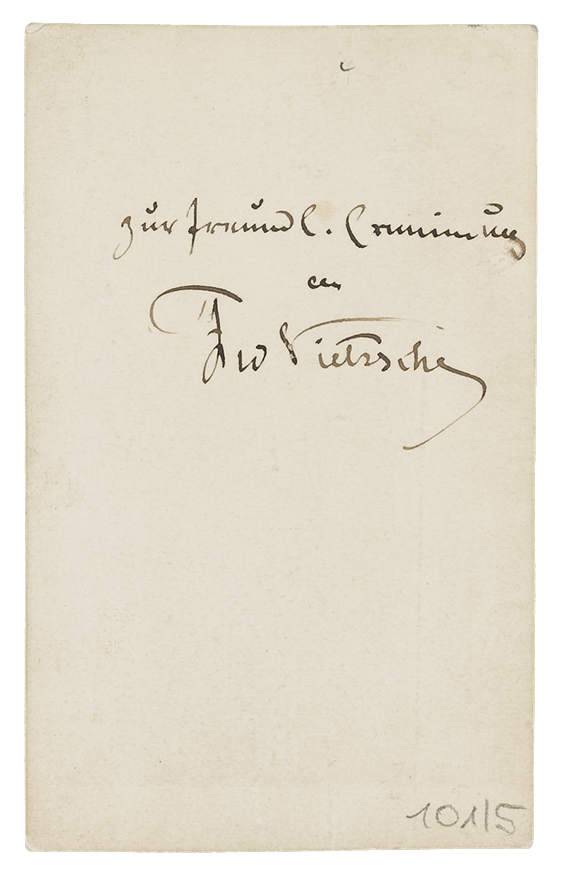 zur freundl. Erinnerung
an
Fr W Nietzsche
101/5